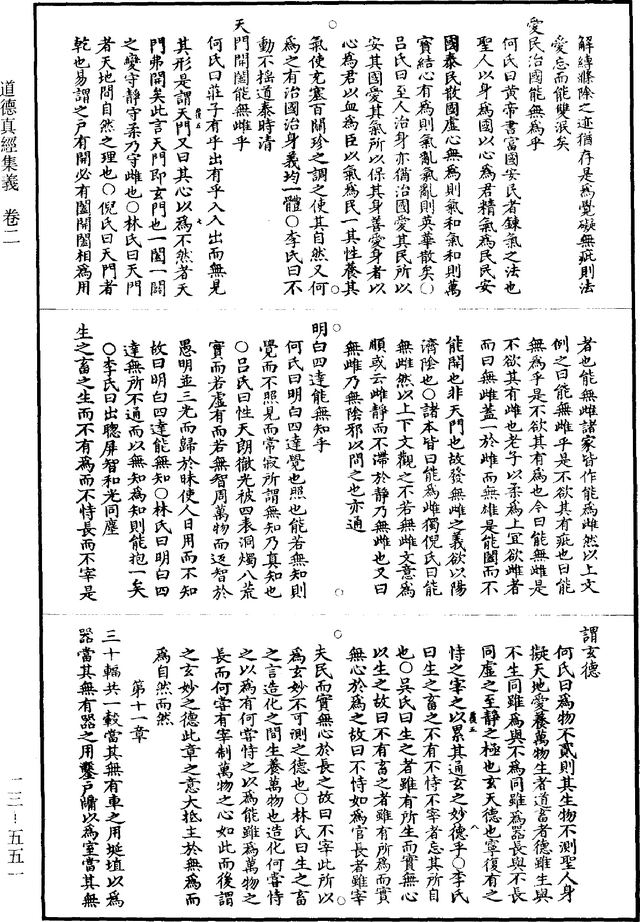 道德真經集義 卷二
一三—五五一
解縛滌除之迹猶存是為覺礙無疵則法
愛忘而能雙泯矣
愛民治國能無為乎
何氏曰黃帝書富國安民者鍊氣之法也
聖人以身為國以心為君精氣為民民安
國泰民散國虛心無為則氣和氣和則萬
寶結心有為則氣亂氣亂則英華散矣○
呂氏曰至人治身亦猶治國愛其民所以
安其國愛其氣所以保其身善愛身者以
心為君以血為臣以氣為民一其性養其
氣使充塞百關珍之調之使其自然又何
為之有治國治身義均一體○李氏曰不
動不搖道泰時清
天門開闔能無雌乎
何氏曰莊子有乎出有乎入入出而無見
其形是謂天門又曰其心以為不然者天
門弗開矣此言天門即玄門也一闔一闢
之變守靜守柔乃守雌也○林氏曰天門
者天地間自然之理也○倪氏曰天門者
乾也易謂之戶有開必有闔開闔相為用
者也能無雌諸家皆作能為雌然以上文
例之曰能無雌乎是不欲其有疵也曰能
無為乎是不欲其有為也今曰能無雌是
不欲其有雌也老子以柔為上宜欲雌者
而曰無雌蓋一於雌而無雄是能闔而不
能開也非天門也故發無雌之義欲以陽
濟陰也○諸本皆曰能為雌獨倪氏曰能
無雌然以上下文觀之不若無雌文意為
順或云雌靜而不滯於靜乃無雌也又曰
無雌乃無陰邪以問之也亦通
明白四達能無知乎
何氏曰明白四達覺也照也能若無知則
覺而不照見而常寂所謂無知乃真知也
○呂氏曰性天朗徹光被四表洞燭八荒
實而若虛有而若無智周萬物而返智於
愚明並三光而歸於昧使人日用而不知
故曰明白四達能無知○林氏曰明白四
達無所不通而以無知為知則能抱一矣
○李氏曰出聰屏智和光同塵
生之畜之生而不有為而不恃長而不宰是
謂玄德
何氏曰為物不貳則其生物不測聖人身
擬天地愛養萬物生者道畜者德雖生與
不生同雖為與不為同雖為器長與不長
同虛之至靜之極也玄天德也寧復有之
恃之宰之以累其通玄之妙德乎○李氏
曰生之畜之不有不恃不宰者忘其所自
也○吳氏曰生之者雖有所生而實無心
以生之故曰不有畜之者雖有所為而實
無心於為之故曰不恃如為官長者雖宰
夫民而實無心於長之故曰不宰此所以
為玄妙不可測之德也○林氏曰生之畜
之言造化之間生養萬物也造化何嘗恃
之以為有何嘗恃之以為能雖為萬物之
長而何嘗有宰制萬物之心如此而後謂
之玄妙之德此章之意大抵主於無為而
為自然而然
第十一章
三十輻共一轂當其無有車之用埏埴以為
器當其無有器之用鑿戶牖以為室當其無